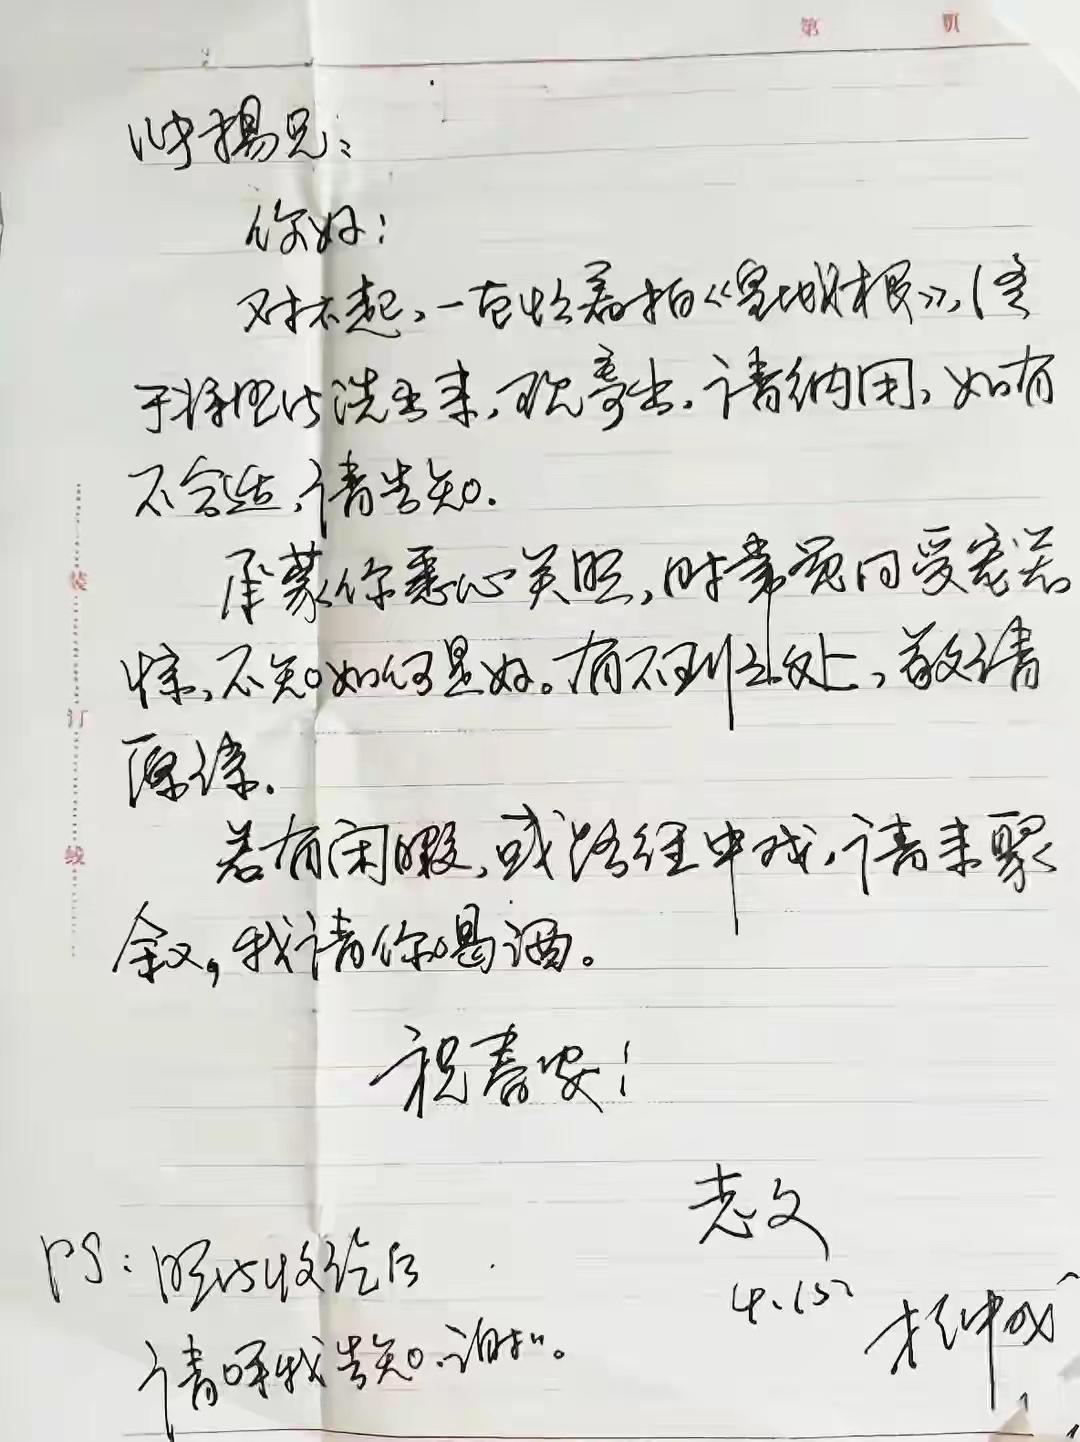 第 页
仲揚兄：
你好！
对不起，一直忙着拍《皇城根》，终
于将照片洗出来，现寄出，请纳用，如有
不合适，请告知。
承蒙你悉心关照，时常觉的受宠若
惊，不知如何是好。有不到之处，敬请
原谅。
若有闲暇，或路经中戏，请来聚
叙，我请你喝酒。
祝春安！
志文
4.15
PS：照片收讫后
请呼我告知。谢谢。
装
订
线